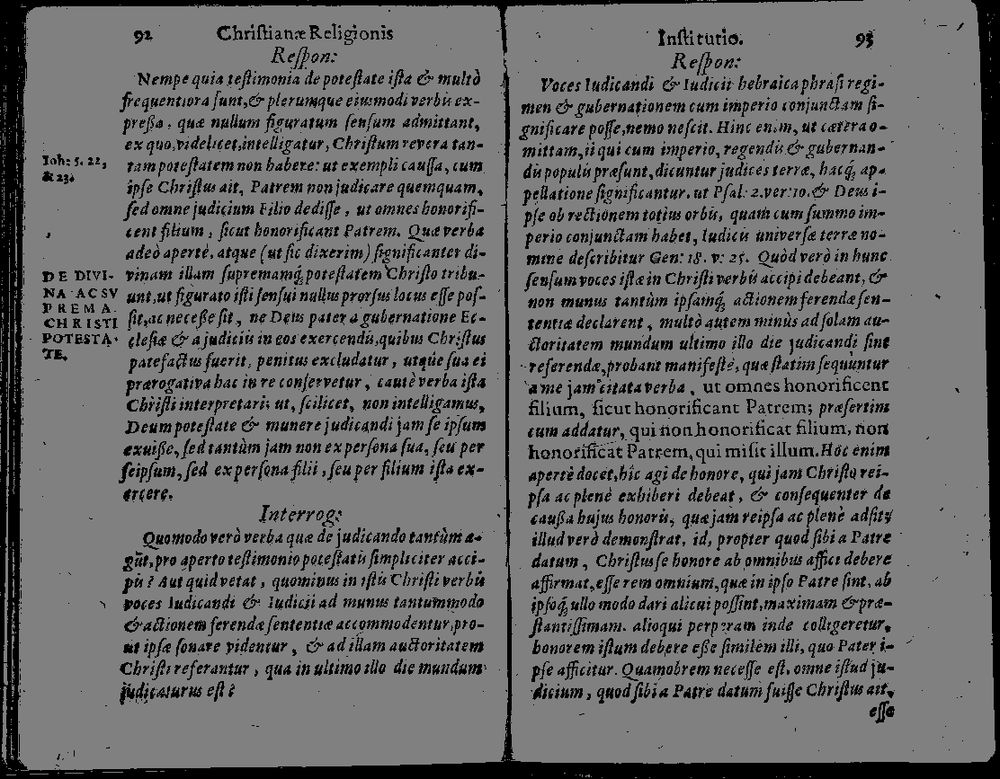 92 Christianæ Religionis
Respon:
Nempe quia testimonia de potestate ista & multò
frequentiora sunt, & plerumque eiusmodi verbis ex-
pressa, quæ nullum figuratum sensum admittant,
ex quo, videlicet, intelligatur, Christum revera tan-
tam potestatem non habere: ut exempli caussa, cum
ipse Christus ait, Patrem non judicare quemquam,
sed omne judicium Filio dedisse, ut omnes honorifi-
cent filium, sicut honorificant Patrem. Quæ verba
adeò apertè, atque (ut sic dixerim) significanter di-
vinam illam supremamq; potestatem Christo tribu-
unt, ut figurato isti sensui nullus prorsus locus esse pos-
sit, ac necesse sit, ne Deus pater a gubernatione Ec-
clesiæ & a judiciis in eos exercendis, quibus Christus
patefactus fuerit, penitus excludatur, utque sua ei
prærogativa hac in re conservetur, cautè verba ista
Christi interpretari; ut, scilicet, non intelligamus,
Deum potestate & munere judicandi jam se ipsum
exuisse, sed tantùm jam non ex persona sua, seu per
seipsum, sed ex persona filii, seu per filium ista ex-
ercere.
Interrog:
Quomodo verò verba quæ de judicando tantùm a-
gūt, pro aperto testimonio potestatis simpliciter acci-
pis? Aut quid vetat, quominus in istis Christi verbis
voces Iudicandi & Iudicii ad munus tantummodo
& actionem ferendæ sententiæ accommodentur, pro-
ut ipsæ sonare videntur, & ad illam auctoritatem
Christi referantur, qua in ultimo illo die mundum
judicaturus est?
Ioh: 5. 22,
& 23.
DE DIVI-
NA AC SV
PREMA
CHRISTI
POTESTA-
TE.
Institutio. 93
Respon:
Voces Iudicandi & Iudicii hebraica phrasi regi-
men & gubernationem cum imperio conjunctam si-
gnificare posse, nemo nescit. Hinc enim, ut cætera o-
mittam, ii qui cum imperio, regendis & gubernan-
dis populis præsunt, dicuntur judices terræ, hacq; ap-
pellatione significantur. ut Psal: 2. ver: 10. & Deus i-
pse ob rectionem totius orbis, quam cum summo im-
perio conjunctam habet, Iudicis universæ terræ no-
mine describitur Gen: 18. v: 25. Quòd verò in hunc
sensum voces istæ in Christi verbis accipi debeant, &
non munus tantùm ipsamq; actionem ferendæ sen-
tentiæ declarent, multò autem minùs ad solam au-
ctoritatem mundum ultimo illo die judicandi sint
referendæ, probant manifestè, quæ statim sequuntur
a me jam citata verba, ut omnes honorificent
filium, sicut honorificant Patrem; præsertim
cum addatur, qui non honorificat filium, non
honorificat Patrem, qui misit illum. Hoc enim
apertè docet, hîc agi de honore, qui jam Christo rei-
psa ac plenè exhiberi debeat, & consequenter de
caussa hujus honoris, quæ jam reipsa ac plenè adsit;
illud verò demonstrat, id, propter quod sibi a Patre
datum, Christus se honore ab omnibus affici debere
affirmat, esse rem omnium, quæ in ipso Patre sint, ab
ipsoq; ullo modo dari alicui possint, maximam & præ-
stantissimam. alioqui perperam inde colligeretur,
honorem istum debere esse similem illi, quo Pater i-
pse afficitur. Quamobrem necesse est, omne istud ju-
dicium, quod sibi a Patre datum fuisse Christus ait,
esse